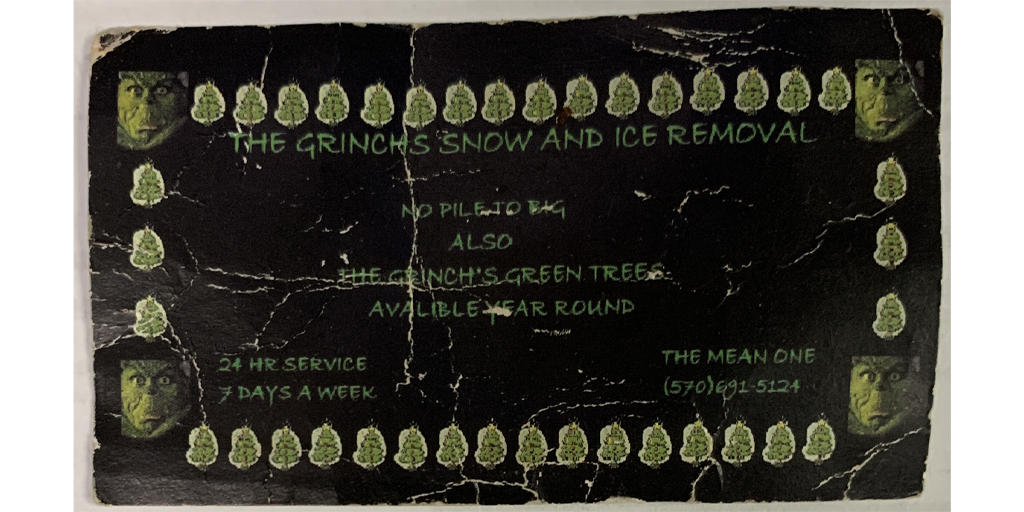 THE GRINCHS SNOW AND ICE REMOVAL
NO PILE TO BIG
ALSO
THE GRINCH'S GREEN TREES
AVALIBLE YEAR ROUND
24 HR SERVICE
7 DAYS A WEEK
THE MEAN ONE
(570)691-5124